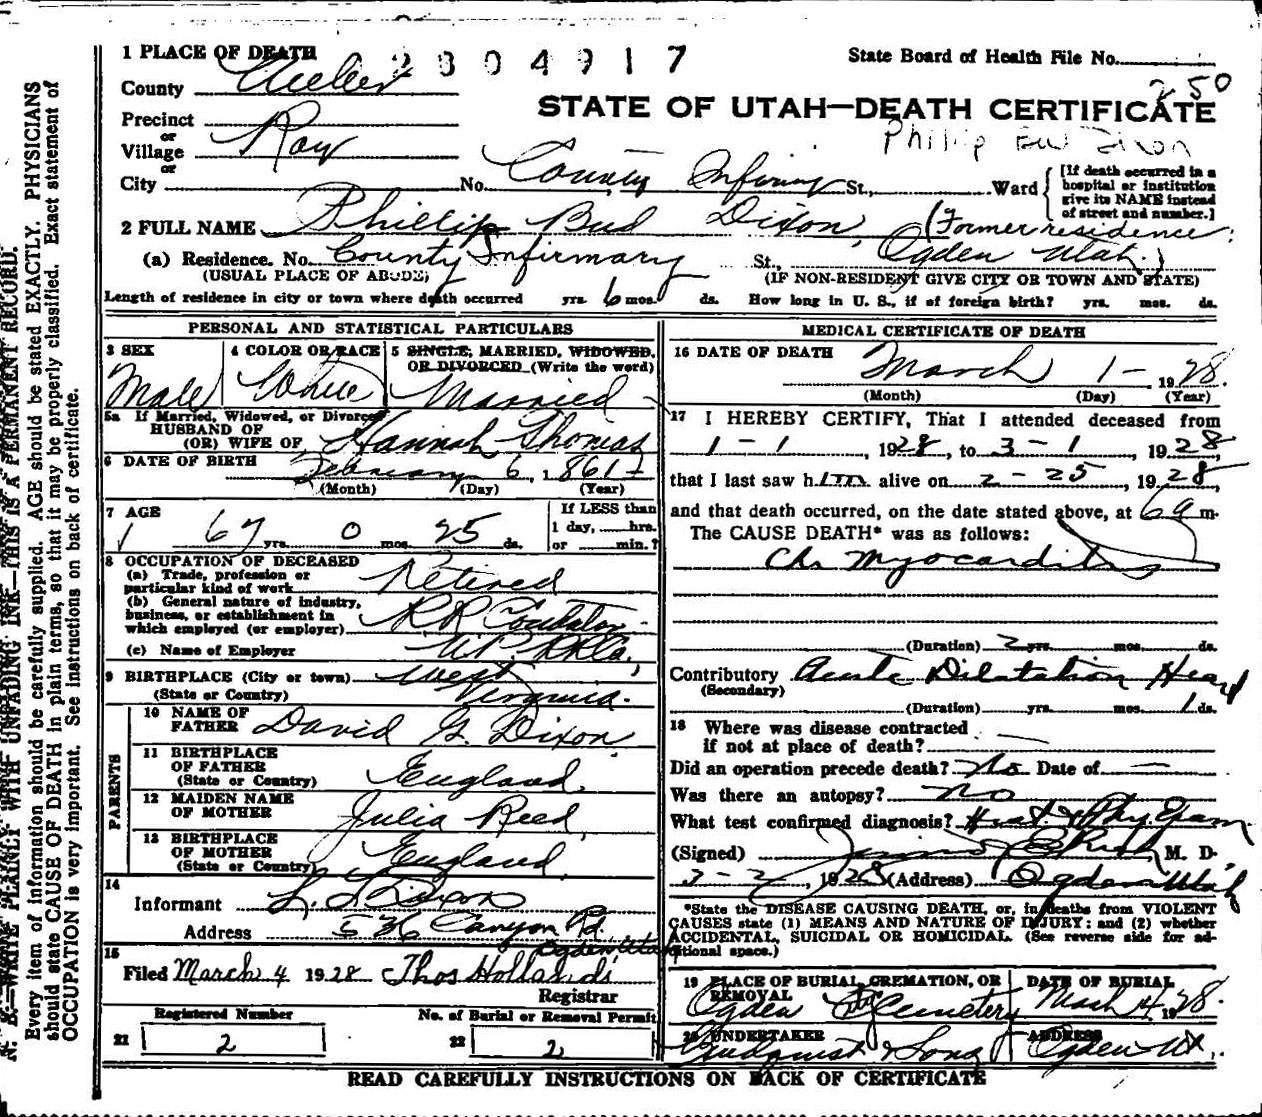 1 PLACE OF DEATH 2304917 State Board of Health File No.
County Weber 250
STATE OF UTAH—DEATH CERTIFICATE
Precinct
or
Village Roy
Phillip Bud Dixon
or
City No. County Infirmy St., Ward [If death occurred in a hospital or institution give its NAME instead of street and number.]
2 FULL NAME Phillip Bud Dixon, (Former residence,
(a) Residence. No. County Infirmary St., Ogden Utah.)
(USUAL PLACE OF ABODE) (IF NON-RESIDENT GIVE CITY OR TOWN AND STATE)
Length of residence in city or town where death occurred yrs. 6 mos. ds. How long in U. S., if of foreign birth? yrs. mos. ds.
PERSONAL AND STATISTICAL PARTICULARS
3 SEX
Male
4 COLOR OR RACE
White
5 SINGLE, MARRIED, WIDOWED,
OR DIVORCED (Write the word)
Married
5a If Married, Widowed, or Divorced
HUSBAND OF
(OR) WIFE OF Hannah Thomas
6 DATE OF BIRTH February 6, 1861
(Month) (Day) (Year)
7 AGE
67 yrs. 0 mos. 25 ds.
If LESS than
1 day, hrs.
or min.?
8 OCCUPATION OF DECEASED
(a) Trade, profession or
particular kind of work Retired
(b) General nature of industry,
business, or establishment in
which employed (or employer) RR
(c) Name of Employer U.P. RR Co.
9 BIRTHPLACE (City or town) West
(State or Country) Virginia.
PARENTS
10 NAME OF
FATHER David G. Dixon
11 BIRTHPLACE
OF FATHER
(State or Country) England
12 MAIDEN NAME
OF MOTHER Julia Reed
13 BIRTHPLACE
OF MOTHER
(State or Country) England
14
Informant L. Dixon
Address 536 Canyon Rd.
Ogden, Utah
15
Filed March 4 1928 Thos Hollands
Registrar
Registered Number
21 2
No. of Burial or Removal Permit
22 2
MEDICAL CERTIFICATE OF DEATH
16 DATE OF DEATH March 1 - 1928.
(Month) (Day) (Year)
17 I HEREBY CERTIFY, That I attended deceased from
1 - 1, 1928, to 3 - 1, 1928,
that I last saw him alive on 2 - 25, 1928,
and that death occurred, on the date stated above, at 6 a m.
The CAUSE DEATH* was as follows:
Chr Myocarditis
(Duration) 2 yrs. mos. ds.
Contributory Acute Dilatation Heart
(Secondary)
(Duration) yrs. mos. 1 ds.
18 Where was disease contracted
if not at place of death?
Did an operation precede death? No Date of
Was there an autopsy? no
What test confirmed diagnosis? Hist & Phy. Exam
(Signed) M. D.
3-2, 1928 (Address) Ogden Utah
*State the DISEASE CAUSING DEATH, or, in deaths from VIOLENT
CAUSES state (1) MEANS AND NATURE OF INJURY: and (2) whether
ACCIDENTAL, SUICIDAL OR HOMICIDAL. (See reverse side for ad-
ditional space.)
19 PLACE OF BURIAL, CREMATION, OR
REMOVAL
Ogden City Cemetery
DATE OF BURIAL
March 4 1928.
20 UNDERTAKER
Lindquist & Sons
ADDRESS
Ogden Ut.
READ CAREFULLY INSTRUCTIONS ON BACK OF CERTIFICATE
N. B.—WRITE PLAINLY WITH UNFADING INK—THIS IS A PERMANENT RECORD.
Every item of information should be carefully supplied. AGE should be stated EXACTLY. PHYSICIANS
should state CAUSE OF DEATH in plain terms, so that it may be properly classified. Exact statement of
OCCUPATION is very important. See instructions on back of certificate.